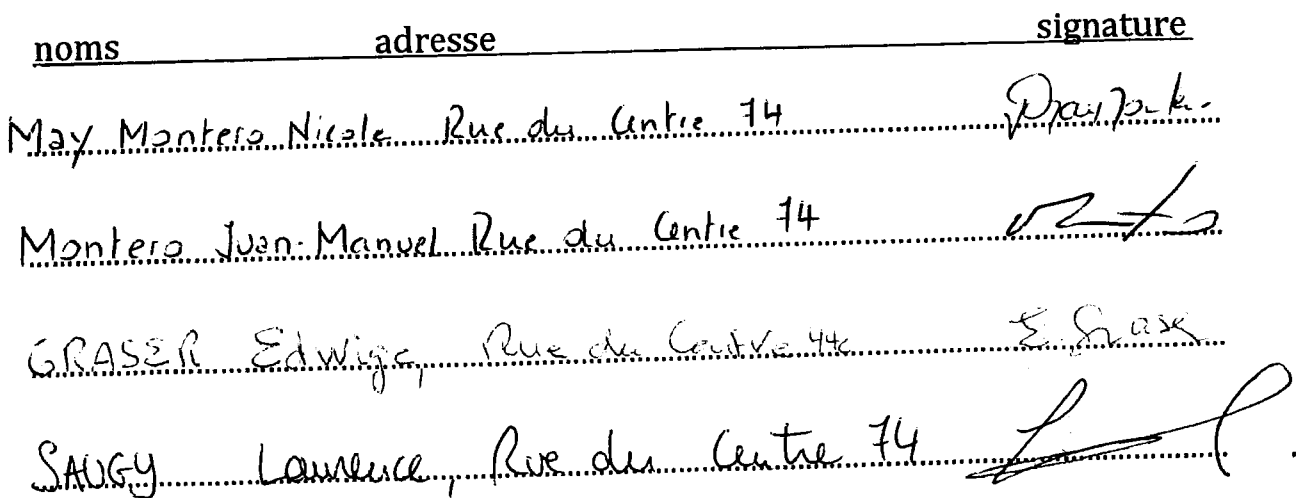 noms adresse signature
May Montero Nicole Rue du Centre 74
Montero Juan-Manuel Rue du Centre 74
GRASER Edwige, Rue du Centre 44c E. Graser
SAUGY Laurence, Rue du Centre 74